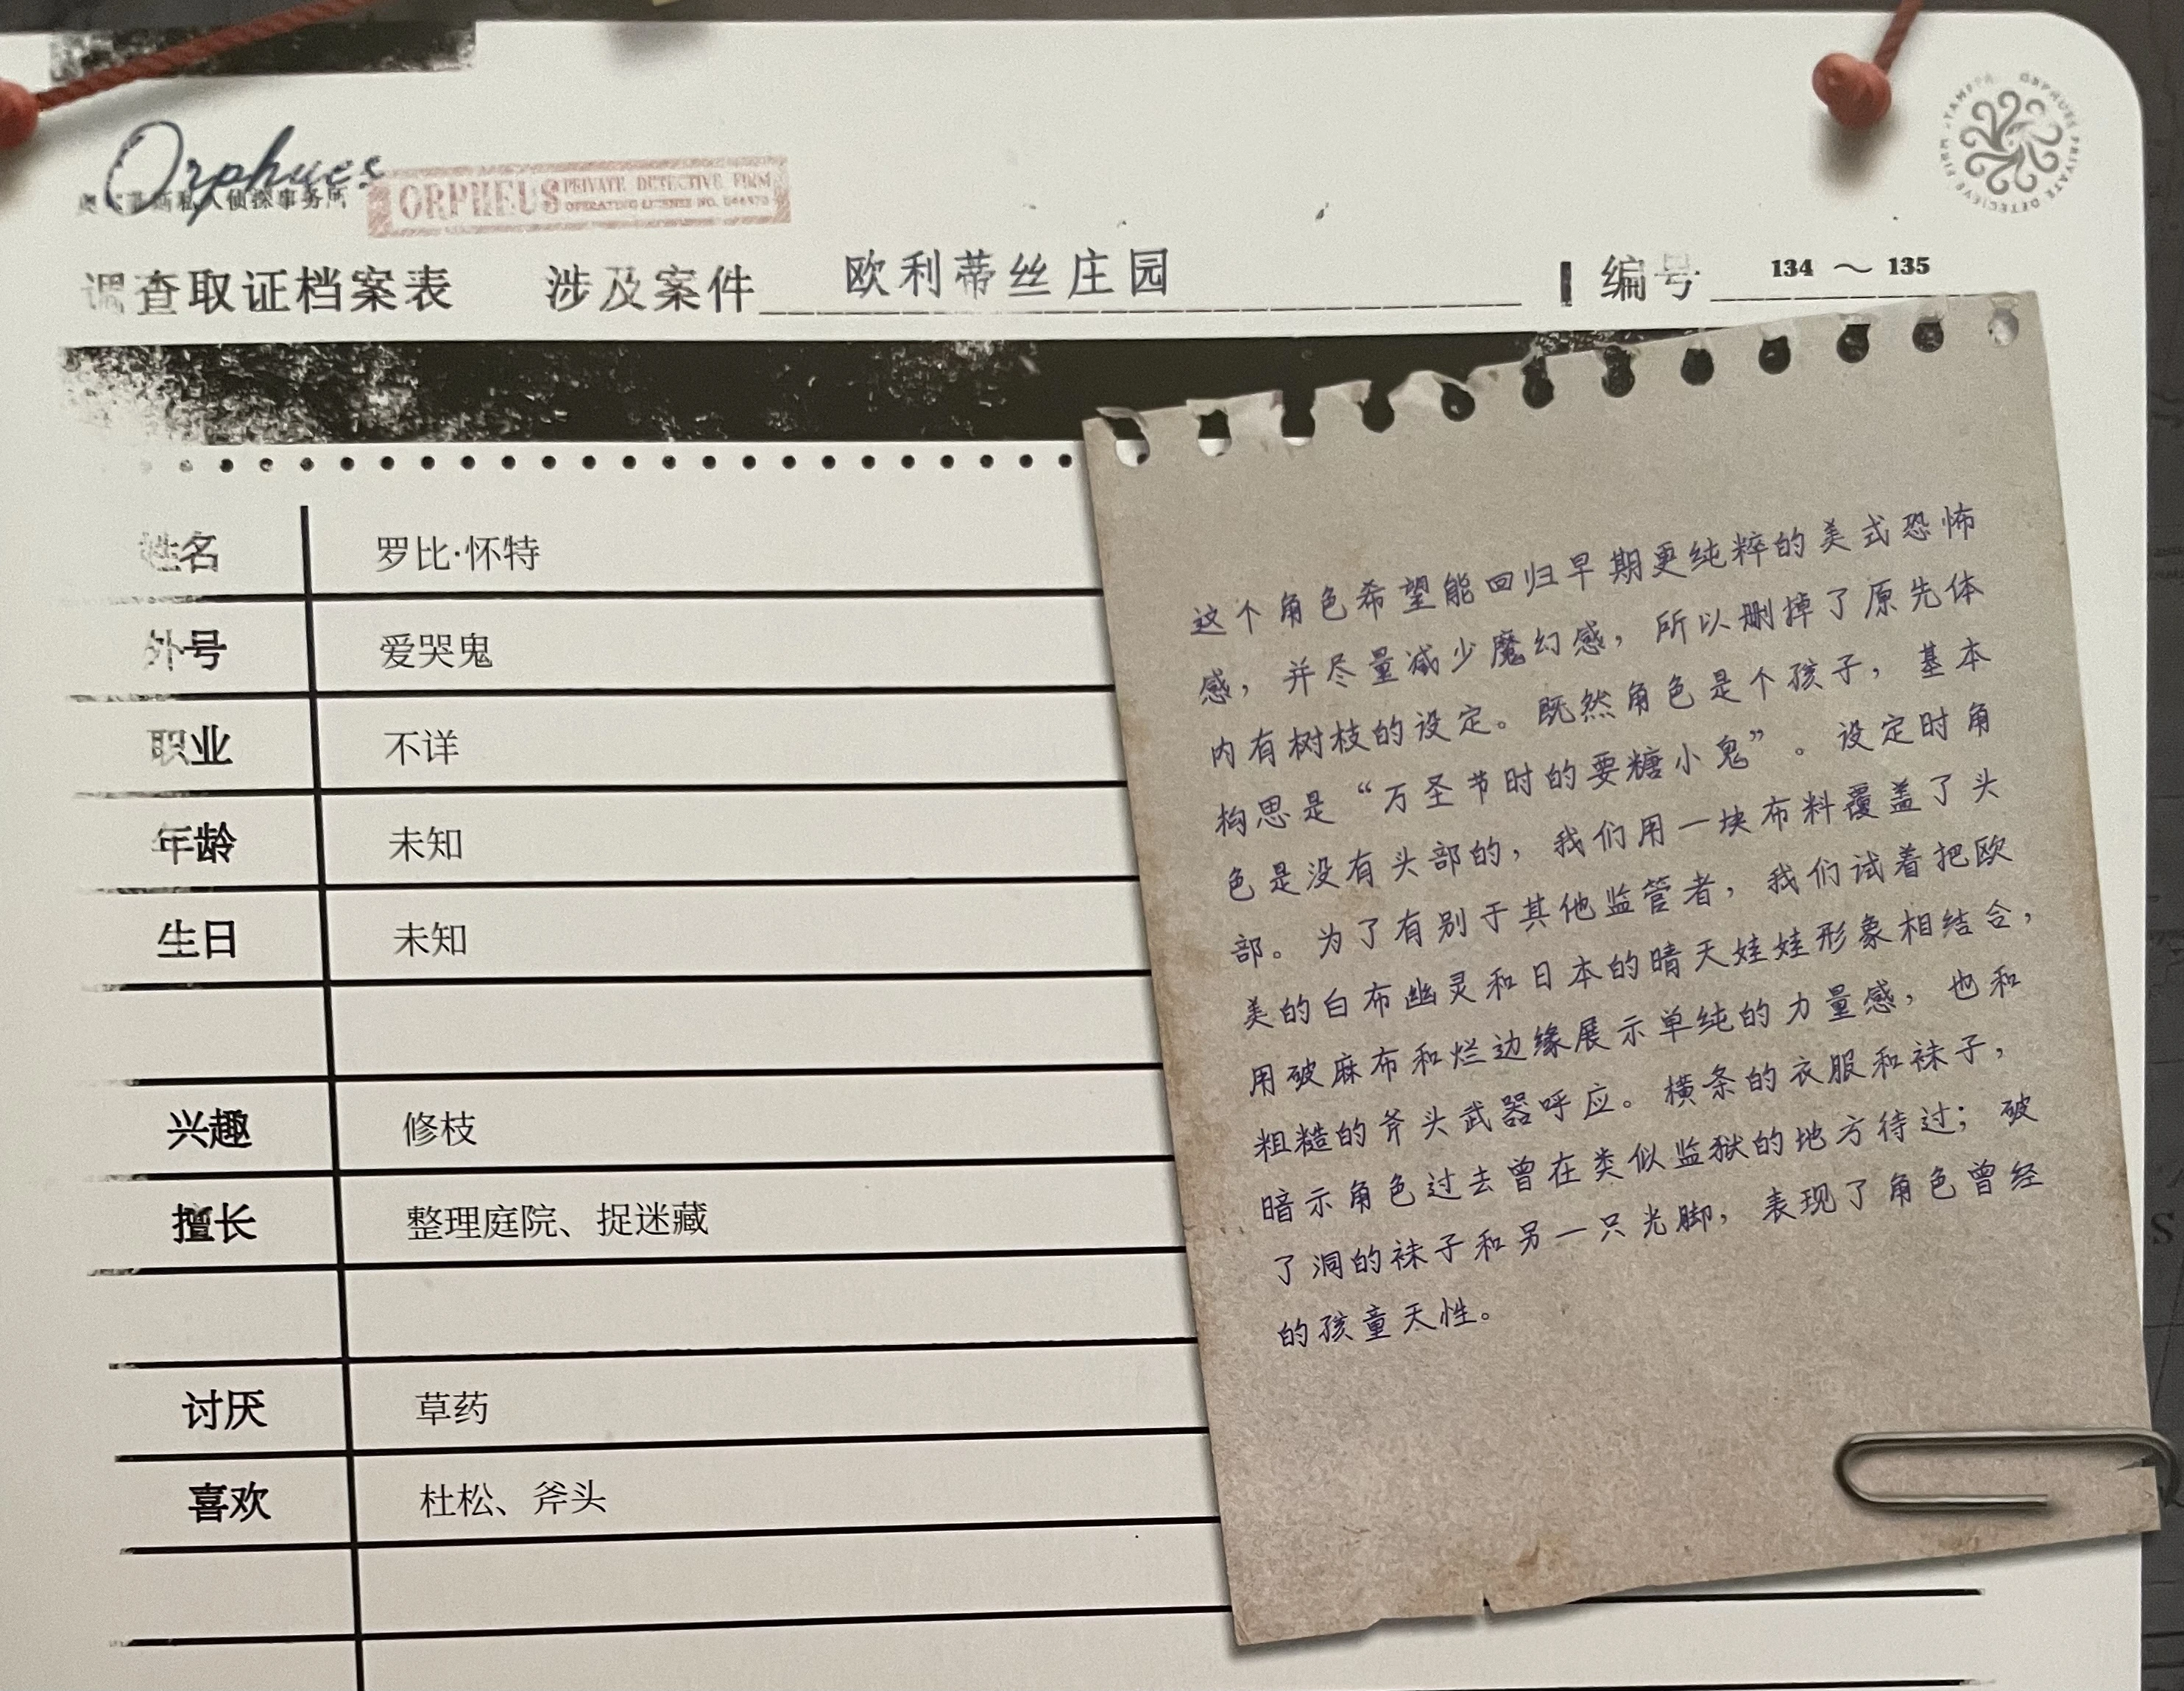 Orphues
私人侦探事务所
ORPHEUS PRIVATE DETECTIVE FIRM
OPERATING LICENSE NO.
ORPHUES PRIVATE DETECIEVE FIRM
调查取证档案表 涉及案件 欧利蒂丝庄园 编号 134 ～ 135
姓名 罗比·怀特
外号 爱哭鬼
职业 不详
年龄 未知
生日 未知
兴趣 修枝
擅长 整理庭院、捉迷藏
讨厌 草药
喜欢 杜松、斧头
这个角色希望能回归早期更纯粹的美式恐怖
感，并尽量减少魔幻感，所以删掉了原先体
内有树枝的设定。既然角色是个孩子，基本
构思是“万圣节时的要糖小鬼”。设定时角
色是没有头部的，我们用一块布料覆盖了头
部。为了有别于其他监管者，我们试着把欧
美的白布幽灵和日本的晴天娃娃形象相结合，
用破麻布和烂边缘展示单纯的力量感，也和
粗糙的斧头武器呼应。横条的衣服和袜子，
暗示角色过去曾在类似监狱的地方待过；破
了洞的袜子和另一只光脚，表现了角色曾经
的孩童天性。
S